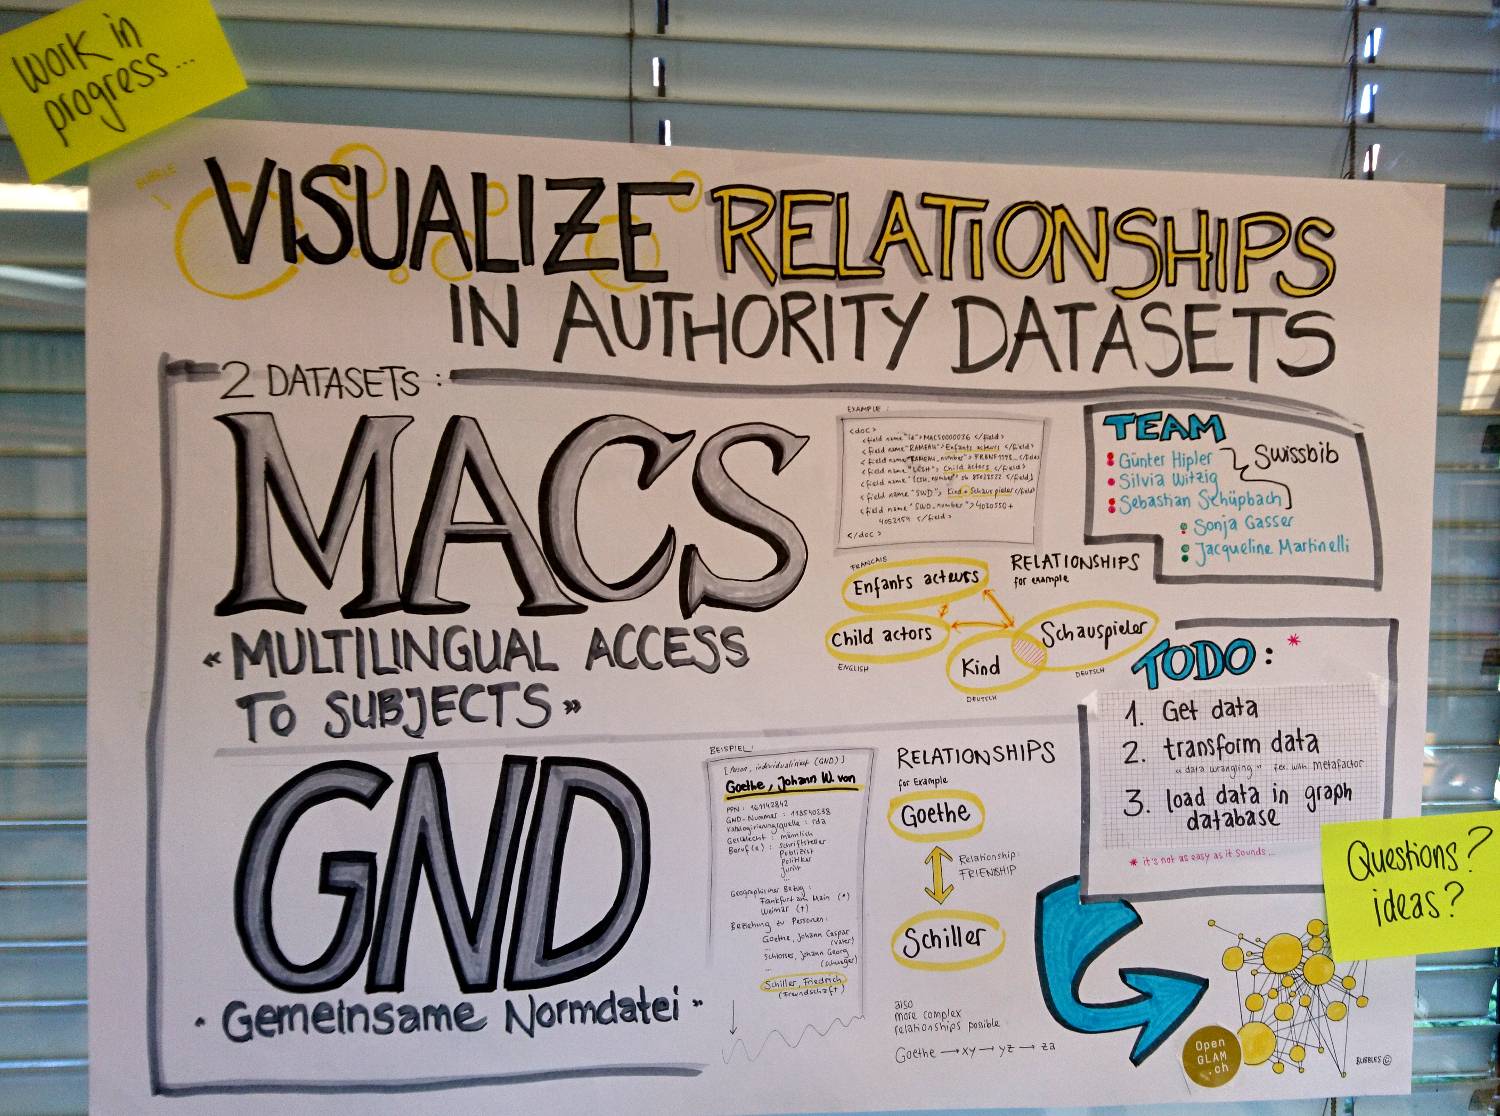 Work in
progress...
BUBBLE
VISUALIZE RELATIONSHIPS
IN AUTHORITY DATASETS
2 DATASETS:
MACS
«MULTILINGUAL ACCESS
TO SUBJECTS»
EXAMPLE:
<doc>
<field name="id">MACS0000036 </field>
<field name="RAMEAU">Enfants acteurs </field>
<field name="RAMEAU_number"> FRBNF1193
<field name="LCSH"> Child actors </field>
<field name="LCSH_number"> sh 85023322 </field>
<field name="SWD"> Kind + Schauspieler </field>
<field name="SWD_number"> 4030550 +
4052154 </field>
</doc>
FRANCAIS
Enfants acteurs
RELATIONSHIPS
for example
Child actors
ENGLISH
Kind
DEUTSCH
Schauspieler
DEUTSCH
TEAM
Günter Hipler
Silvia Witzig
Sebastian Schüpbach
Swissbib
Sonja Gasser
Jacqueline Martinelli
TODO: *
1. Get data
2. transform data
"data wrangling" for with metafactor
3. load data in graph
database
* it's not as easy as it sounds...
Questions?
ideas?
GND
"Gemeinsame Normdatei"
BEISPIEL:
[Person, individualisiert (GND)]
Goethe, Johann W. von
PPN: 161142842
GND-Nummer: 118540238
Katalogisierungsquelle: rda
Geschlecht: männlich
Beruf(e): Schriftsteller
Publizist
Politiker
Jurist
...
Geographischer Bezug:
Frankfurt am Main (*)
Weimar (†)
Beziehung zu Personen:
Goethe, Johann Caspar
(Vater)
...
Schlosser, Johann Georg
(Schwager)
...
Schiller, Friedrich
(Freundschaft)
RELATIONSHIPS
for Example
Goethe
Relationship:
FRIENDSHIP
Schiller
also
more complex
relationships possible
Goethe → xy → yz → za
Open
GLAM
.ch
BUBBLES ©